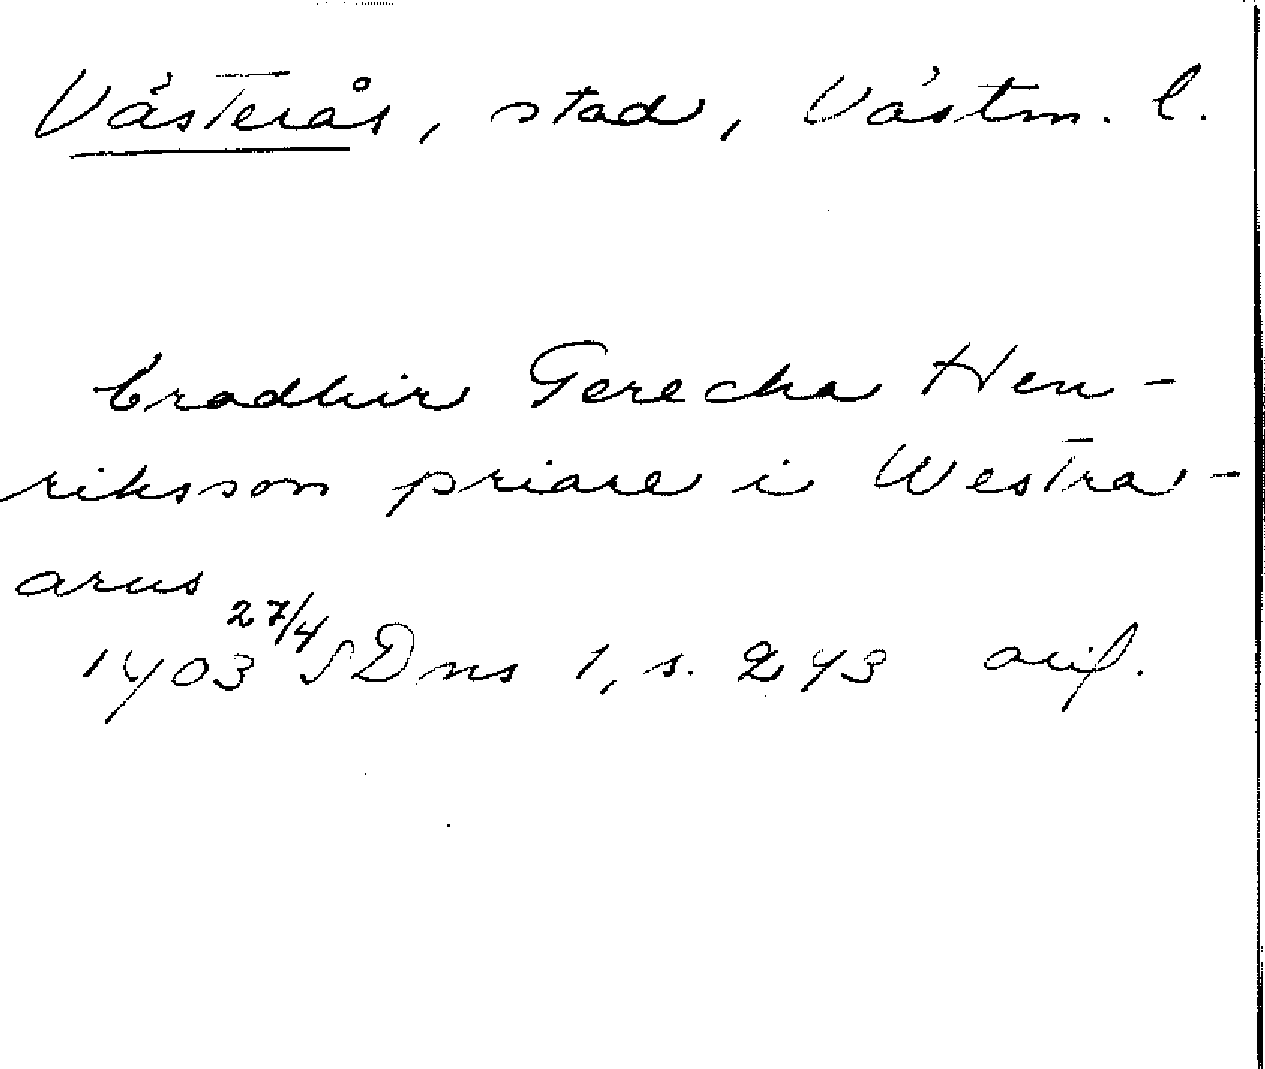 Västerås, stad, Västm. l.
brodhir Gerecha Hen-
riksson priare i Westra-
arus
1403 27/4 SDns 1, s. 243 orig.